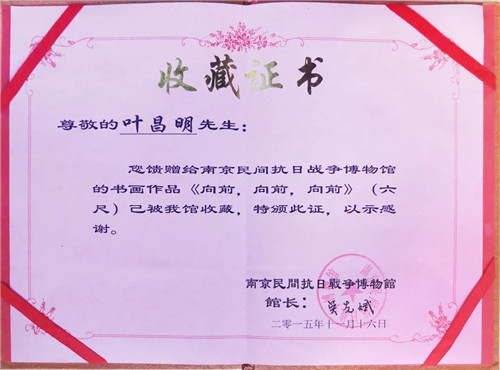 收藏证书
尊敬的叶昌明先生：
您馈赠给南京民间抗日战争博物馆
的书画作品《向前，向前，向前》（六
尺）已被我馆收藏，特颁此证，以示感
谢。
南京民間抗日戰爭博物館
館长：吴先斌
二零一五年十一月十六日